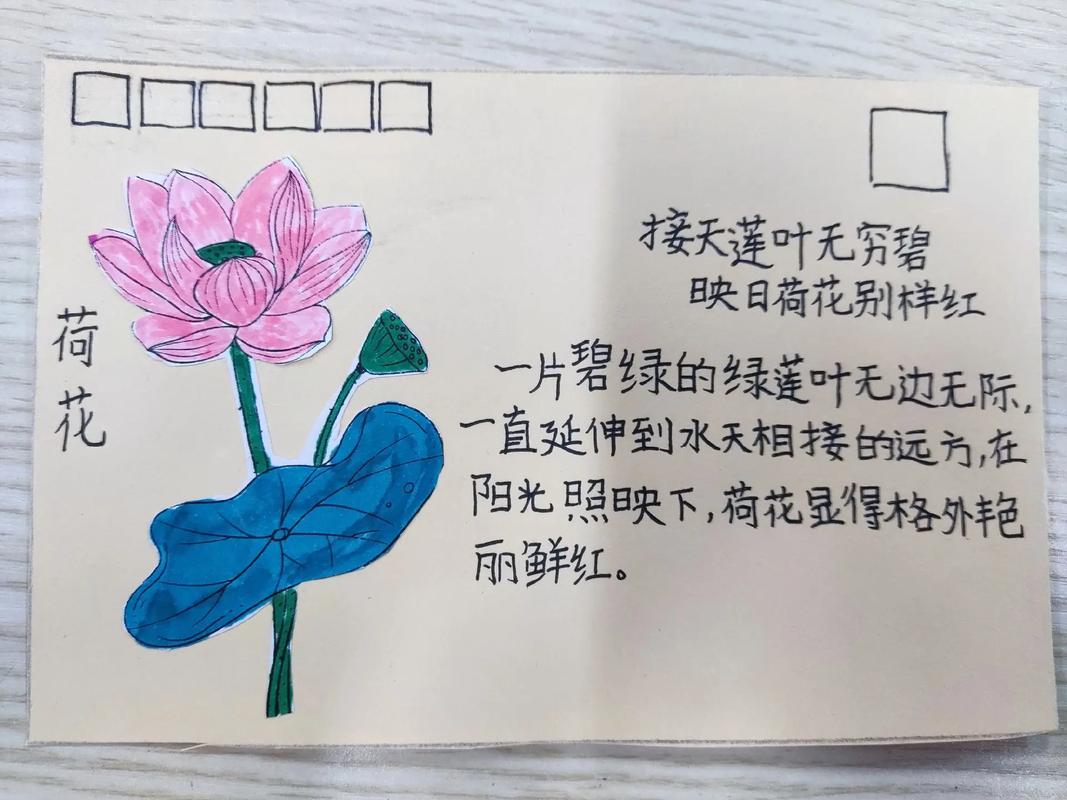 荷花
接天莲叶无穷碧
映日荷花别样红
一片碧绿的绿莲叶无边无际,
一直延伸到水天相接的远方,在
阳光照映下,荷花显得格外艳
丽鲜红。